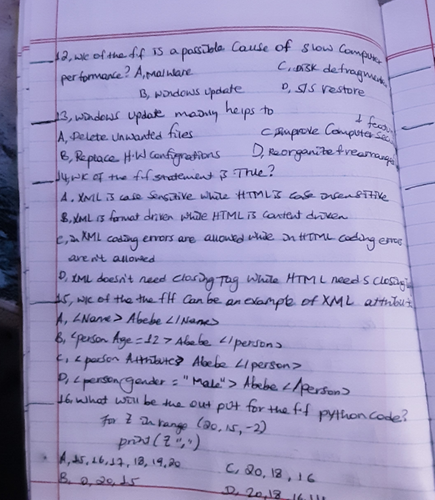 12, w/c of the f.f is a possible Cause of slow Computer
performance? A, malware C, Disk defragment
B, windows update D, S/S restore
13, windows update mainly helps to
A, Delete unwanted files C, improve Computer Sec
B, Replace H.W configrations D, Reorganize
14, w/c of the f.f statement is True?
A, XML is case sensitive while HTML is case insensitive
B, XML is format driven while HTML is content driven
C, in XML coding errors are allowed while in HTML coding errors
are n't allowed
D, XML doesn't need closing Tag while HTML needs closing
15, w/c of the the fff can be an example of XML attribut
A, <Name> Abebe </Name>
B, <person Age = 12 > Abebe </person>
C, <person Attribute> Abebe </person>
D, <person gender = "Male"> Abebe </person>
16, What will be the out put for the f.f python code?
For Z in range (20, 15, -2)
print (Z ",")
A, 15, 16, 17, 18, 19, 20 C, 20, 18, 16
B, 0, 20, 15 D, 20, 18, 16